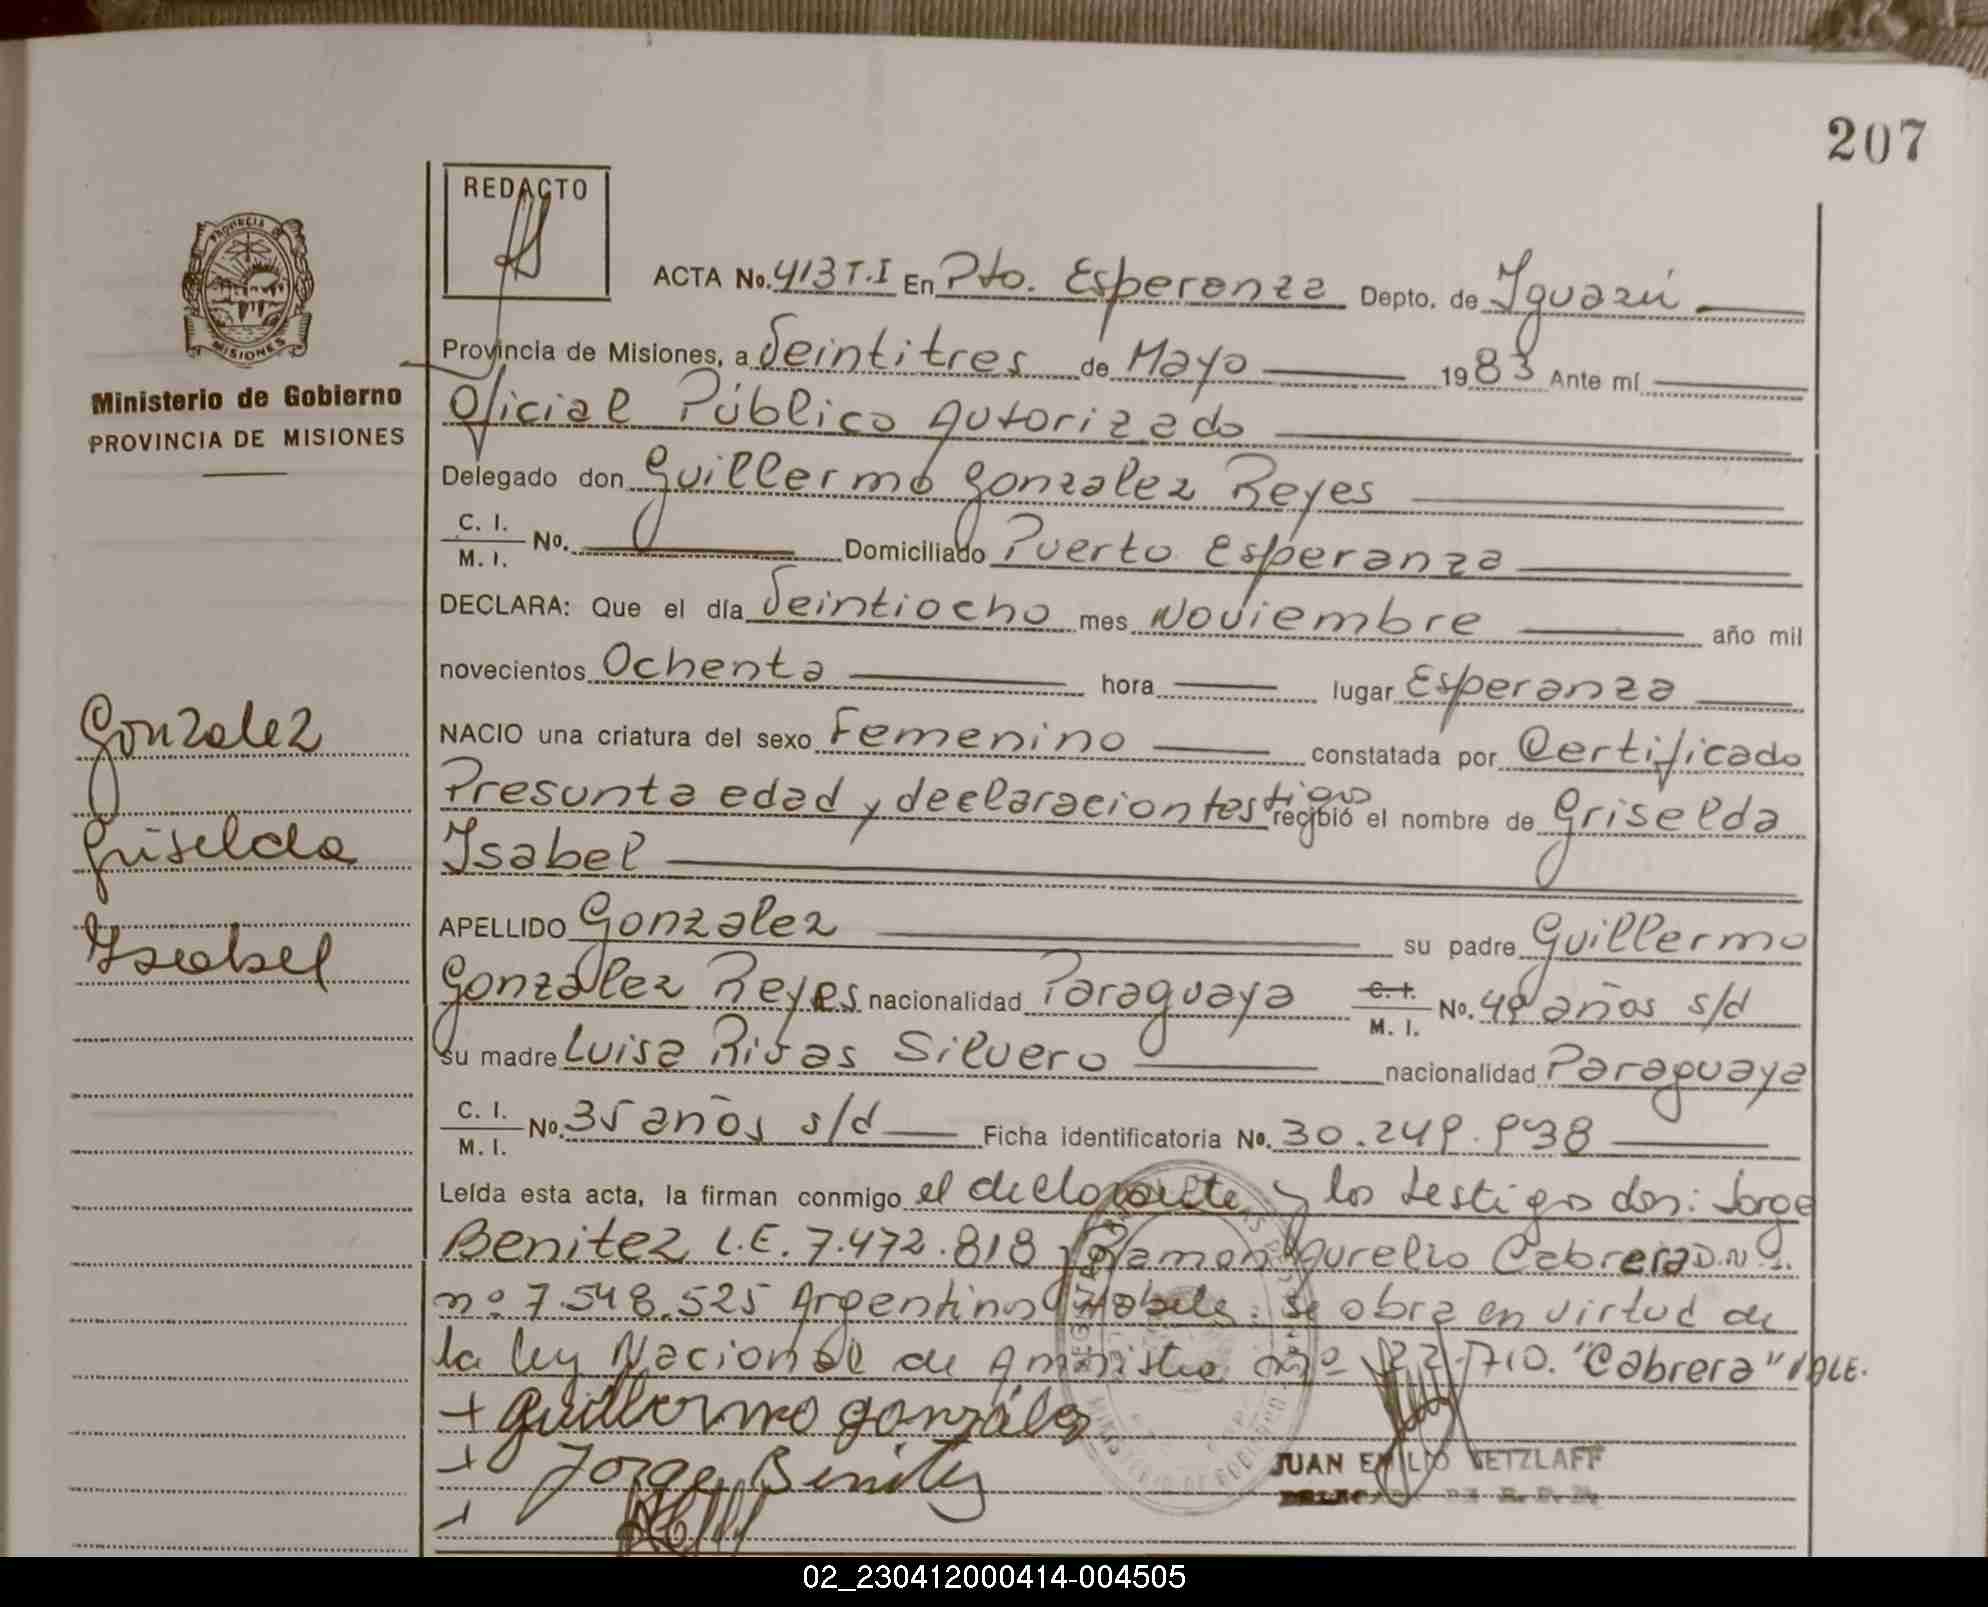 207
REDACTO
ACTA No. 413 T.I En Pto. Esperanza Depto. de Iguazú
PROVINCIA DE
MISIONES
Provincia de Misiones, a Veintitres de Mayo 1983 Ante mí
Ministerio de Gobierno
PROVINCIA DE MISIONES
Oficial Público Autorizado
Delegado don Guillermo Gonzalez Reyes
C. I.
M. I. No. Domiciliado Puerto Esperanza
DECLARA: Que el día Veintiocho mes Noviembre año mil
novecientos Ochenta hora lugar Esperanza
NACIO una criatura del sexo Femenino constatada por Certificado
Presunta edad y declaracion testigos recibió el nombre de Griselda
Isabel
Gonzalez
Griselda
Isabel
APELLIDO Gonzalez su padre Guillermo
Gonzalez Reyes nacionalidad Paraguaya C. I. M. I. No. 49 años s/d
su madre Luisa Rivas Silvero nacionalidad Paraguaya
C. I.
M. I. No. 35 años s/d Ficha identificatoria No. 30.249.938
Leída esta acta, la firman conmigo el declarante y los testigos don: Jorge
Benitez L.E. 7.472.818 y Ramon Aurelio Cabrera D.N.I.
nº 7.548.525 Argentinos Habiles. Se obra en virtud de
la ley Nacional de Amnistia nº 22.710. "Cabrera" VALE.
+ Guillermo gonzález
+ Jorge Benitez
+
JUAN EMILIO RETZLAFF
02_230412000414-004505